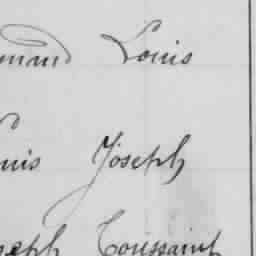 mund Louis
uis Joseph
seph Toussaint